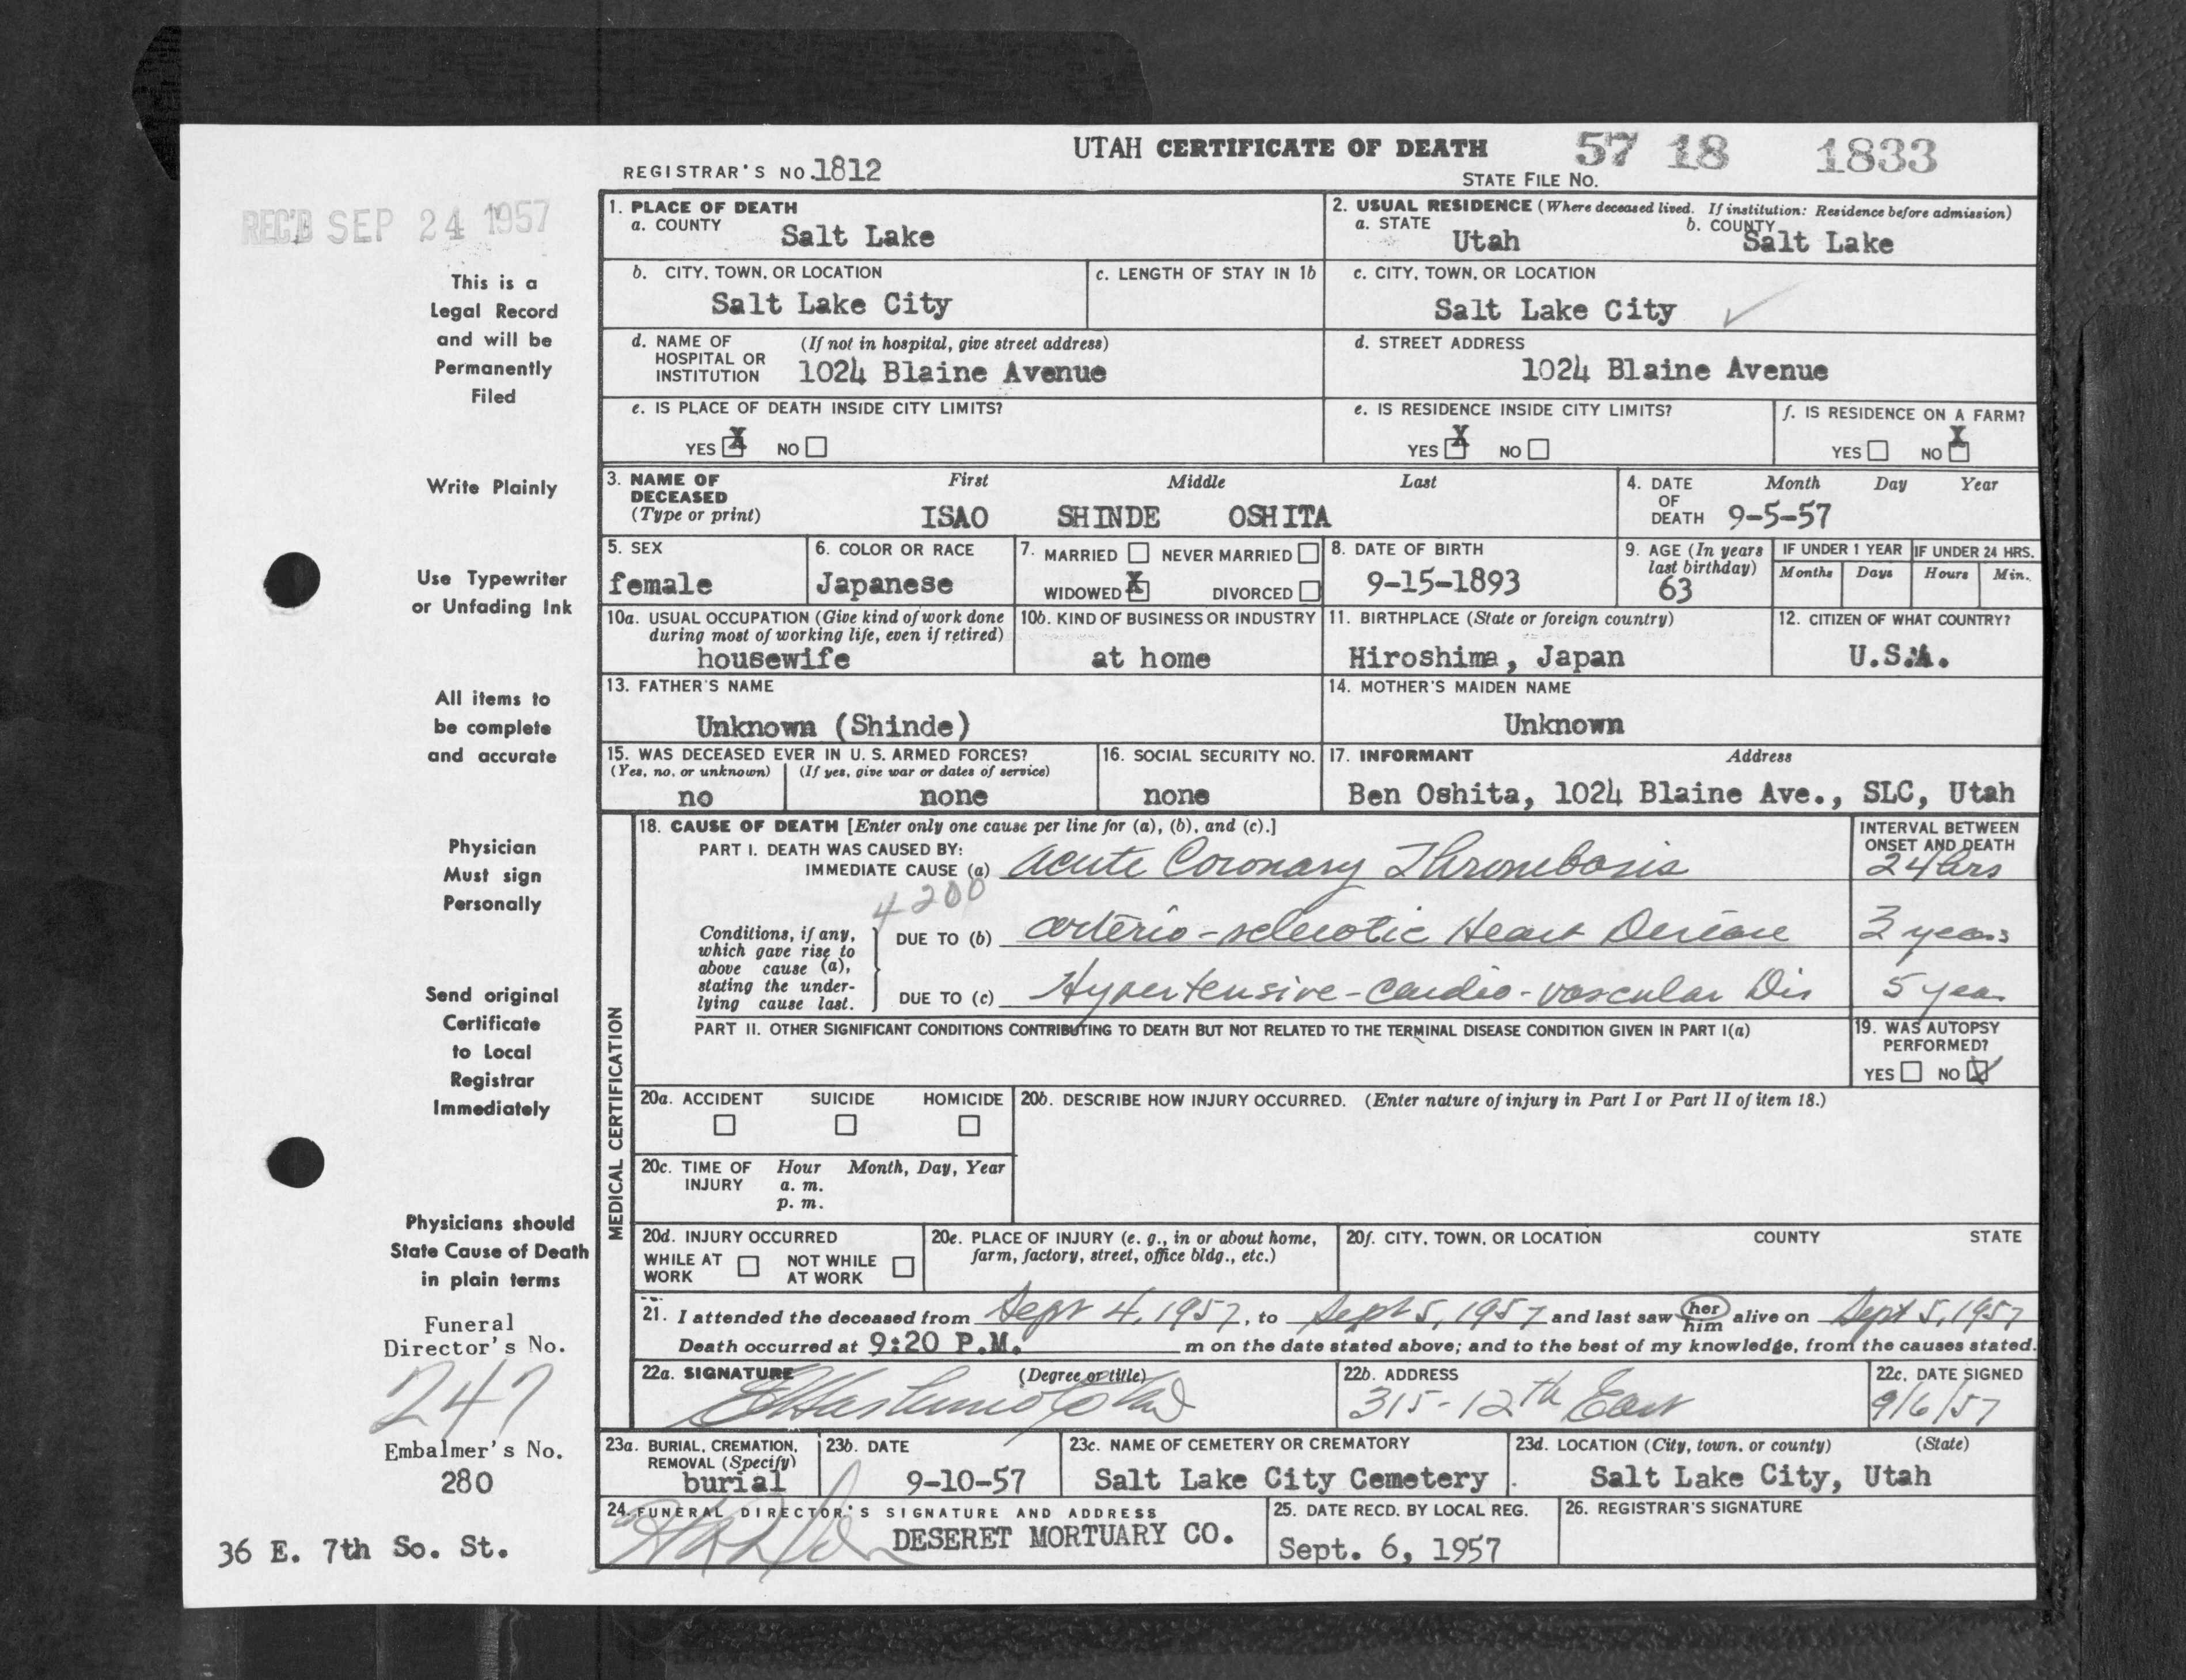 UTAH CERTIFICATE OF DEATH 57 18 1833
REGISTRAR'S NO. 1812
STATE FILE NO.
REC'D SEP 24 1957
This is a
Legal Record
and will be
Permanently
Filed
Write Plainly
Use Typewriter
or Unfading Ink
All items to
be complete
and accurate
Physician
Must sign
Personally
Send original
Certificate
to Local
Registrar
Immediately
Physicians should
State Cause of Death
in plain terms
Funeral
Director's No.
247
Embalmer's No.
280
36 E. 7th So. St.
1. PLACE OF DEATH
a. COUNTY
Salt Lake
2. USUAL RESIDENCE (Where deceased lived. If institution: Residence before admission)
a. STATE
Utah
b. COUNTY
Salt Lake
b. CITY, TOWN, OR LOCATION
Salt Lake City
c. LENGTH OF STAY IN 1b
c. CITY, TOWN, OR LOCATION
Salt Lake City
d. NAME OF (If not in hospital, give street address)
HOSPITAL OR
INSTITUTION 1024 Blaine Avenue
d. STREET ADDRESS
1024 Blaine Avenue
e. IS PLACE OF DEATH INSIDE CITY LIMITS?
YES X NO
e. IS RESIDENCE INSIDE CITY LIMITS?
YES X NO
f. IS RESIDENCE ON A FARM?
YES NO X
3. NAME OF
DECEASED
(Type or print)
First Middle Last
ISAO SHINDE OSHITA
4. DATE
OF
DEATH
Month Day Year
9-5-57
5. SEX
female
6. COLOR OR RACE
Japanese
7. MARRIED NEVER MARRIED
WIDOWED X DIVORCED
8. DATE OF BIRTH
9-15-1893
9. AGE (In years
last birthday)
63
IF UNDER 1 YEAR
Months Days
IF UNDER 24 HRS.
Hours Min.
10a. USUAL OCCUPATION (Give kind of work done
during most of working life, even if retired)
housewife
10b. KIND OF BUSINESS OR INDUSTRY
at home
11. BIRTHPLACE (State or foreign country)
Hiroshima, Japan
12. CITIZEN OF WHAT COUNTRY?
U.S.A.
13. FATHER'S NAME
Unknown (Shinde)
14. MOTHER'S MAIDEN NAME
Unknown
15. WAS DECEASED EVER IN U. S. ARMED FORCES?
(Yes, no, or unknown) (If yes, give war or dates of service)
no none
16. SOCIAL SECURITY NO.
none
17. INFORMANT Address
Ben Oshita, 1024 Blaine Ave., SLC, Utah
MEDICAL CERTIFICATION
18. CAUSE OF DEATH [Enter only one cause per line for (a), (b), and (c).]
PART I. DEATH WAS CAUSED BY:
IMMEDIATE CAUSE (a) Acute Coronary Thrombosis
INTERVAL BETWEEN
ONSET AND DEATH
24 hrs
4200
Conditions, if any,
which gave rise to
above cause (a),
stating the under-
lying cause last.
DUE TO (b) arterio-sclerotic Heart Disease
3 years
DUE TO (c) Hypertensive-cardio-vascular Dis
5 year
PART II. OTHER SIGNIFICANT CONDITIONS CONTRIBUTING TO DEATH BUT NOT RELATED TO THE TERMINAL DISEASE CONDITION GIVEN IN PART I(a)
19. WAS AUTOPSY
PERFORMED?
YES NO
20a. ACCIDENT SUICIDE HOMICIDE
20b. DESCRIBE HOW INJURY OCCURRED. (Enter nature of injury in Part I or Part II of item 18.)
20c. TIME OF INJURY
Hour Month, Day, Year
a. m.
p. m.
20d. INJURY OCCURRED
WHILE AT WORK
NOT WHILE AT WORK
20e. PLACE OF INJURY (e. g., in or about home,
farm, factory, street, office bldg., etc.)
20f. CITY, TOWN, OR LOCATION COUNTY STATE
21. I attended the deceased from Sept 4, 1957, to Sept 5, 1957 and last saw her him alive on Sept 5, 1957
Death occurred at 9:20 P.M. m on the date stated above; and to the best of my knowledge, from the causes stated.
22a. SIGNATURE (Degree or title)
22b. ADDRESS
315-12th East
22c. DATE SIGNED
9/6/57
23a. BURIAL, CREMATION,
REMOVAL (Specify)
burial
23b. DATE
9-10-57
23c. NAME OF CEMETERY OR CREMATORY
Salt Lake City Cemetery
23d. LOCATION (City, town, or county) (State)
Salt Lake City, Utah
24. FUNERAL DIRECTOR'S SIGNATURE AND ADDRESS
DESERET MORTUARY CO.
25. DATE RECD. BY LOCAL REG.
Sept. 6, 1957
26. REGISTRAR'S SIGNATURE